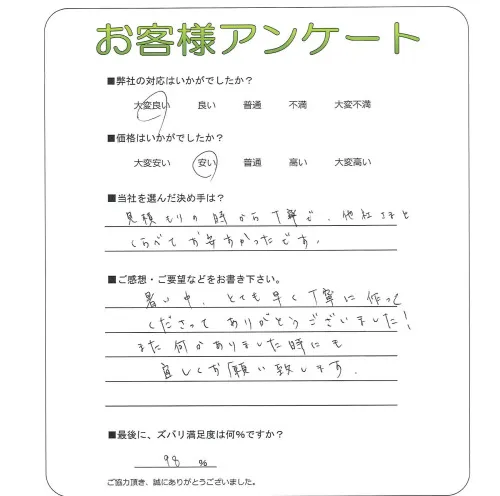 お客様アンケート
■弊社の対応はいかがでしたか？
大変良い　良い　普通　不満　大変不満
■価格はいかがでしたか？
大変安い　安い　普通　高い　大変高い
■当社を選んだ決め手は？
見積もりの時から丁寧で、他社さまと
くらべてお安すかったです。
■ご感想・ご要望などをお書き下さい。
暑い中、とても早く丁寧に作って
くださってありがとうございました！
また何かありました時にも
宜しくお願い致します。
■最後に、ズバリ満足度は何％ですか？
98 %
ご協力頂き、誠にありがとうございました。